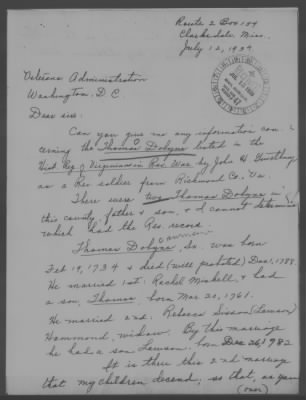 Route 2 Box 184
Clarksdale, Miss.
July 12, 1937.
Veterans Administration
Washington, D C
Dear sir:
Can you give me any information con-
cerning the Thomas Dobyns listed in the
Hist. Reg of Virginians in Rev War by John H. Gwathmey
as a Rev. soldier from Richmond Co. Va.
There were two Thomas Dobyns in
this county, father & son, & I cannot determine
which had the Rev. record.
Thomas Dobyns, Sr. was born
Feb 19, 1734 & died (will probated) Dec 1, 1788.
He married 1st: Rachell Miskell, & had
a son, Thomas, born Mar 20, 1761.
He married 2nd: Rebecca Sisson (Lawson)
Hammond, widow. By this marriage
he had a son Lawson, born Dec 26, 1782
It is there this 2nd marriage
that my children descend, so that, as you
(over)